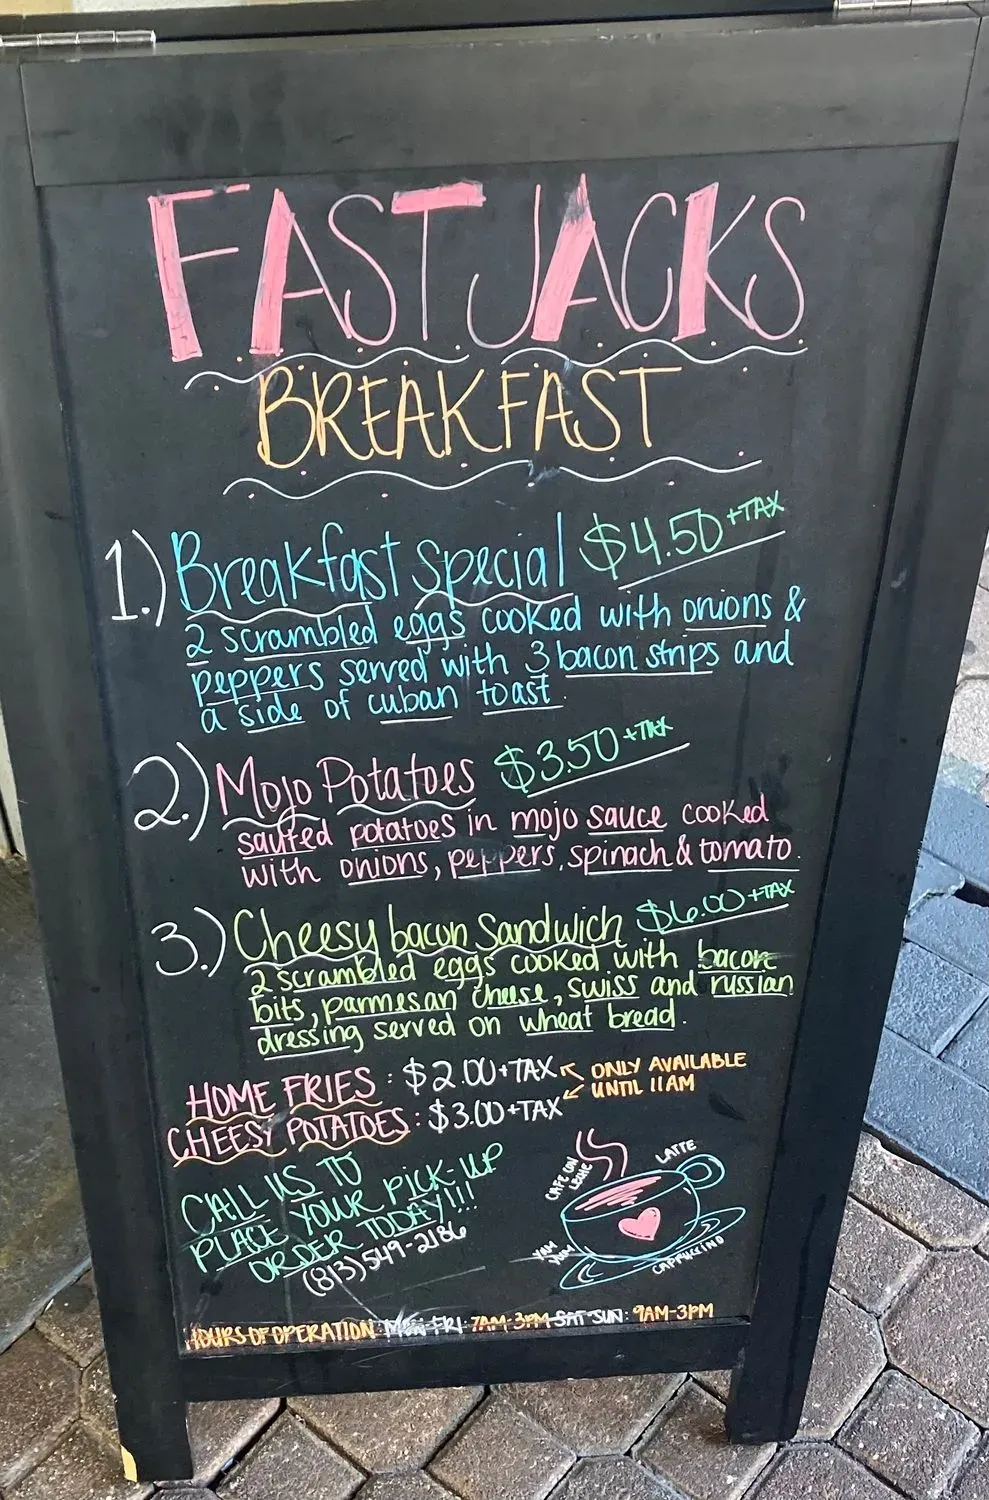 FAST JACKS
BREAKFAST
1.) Breakfast Special $4.50 +TAX
2 scrambled eggs cooked with onions &
peppers served with 3 bacon strips and
a side of cuban toast.
2.) Mojo Potatoes $3.50 +TAX
sauted potatoes in mojo sauce cooked
with onions, peppers, spinach & tomato.
3.) Cheesy bacon Sandwich $6.00 +TAX
2 scrambled eggs cooked with bacon
bits, parmesan cheese, swiss and russian
dressing served on wheat bread.
HOME FRIES : $2.00+TAX
CHEESY POTATOES : $3.00+TAX
ONLY AVAILABLE
UNTIL 11AM
CALL US TO
PLACE YOUR PICK-UP
ORDER TODAY!!!
(813)549-2186
CAFE CON
LECHE
LATTE
YUM
CAPPUCCINO
HOURS OF OPERATION: MON-FRI: 7AM-3PM SAT-SUN: 9AM-3PM